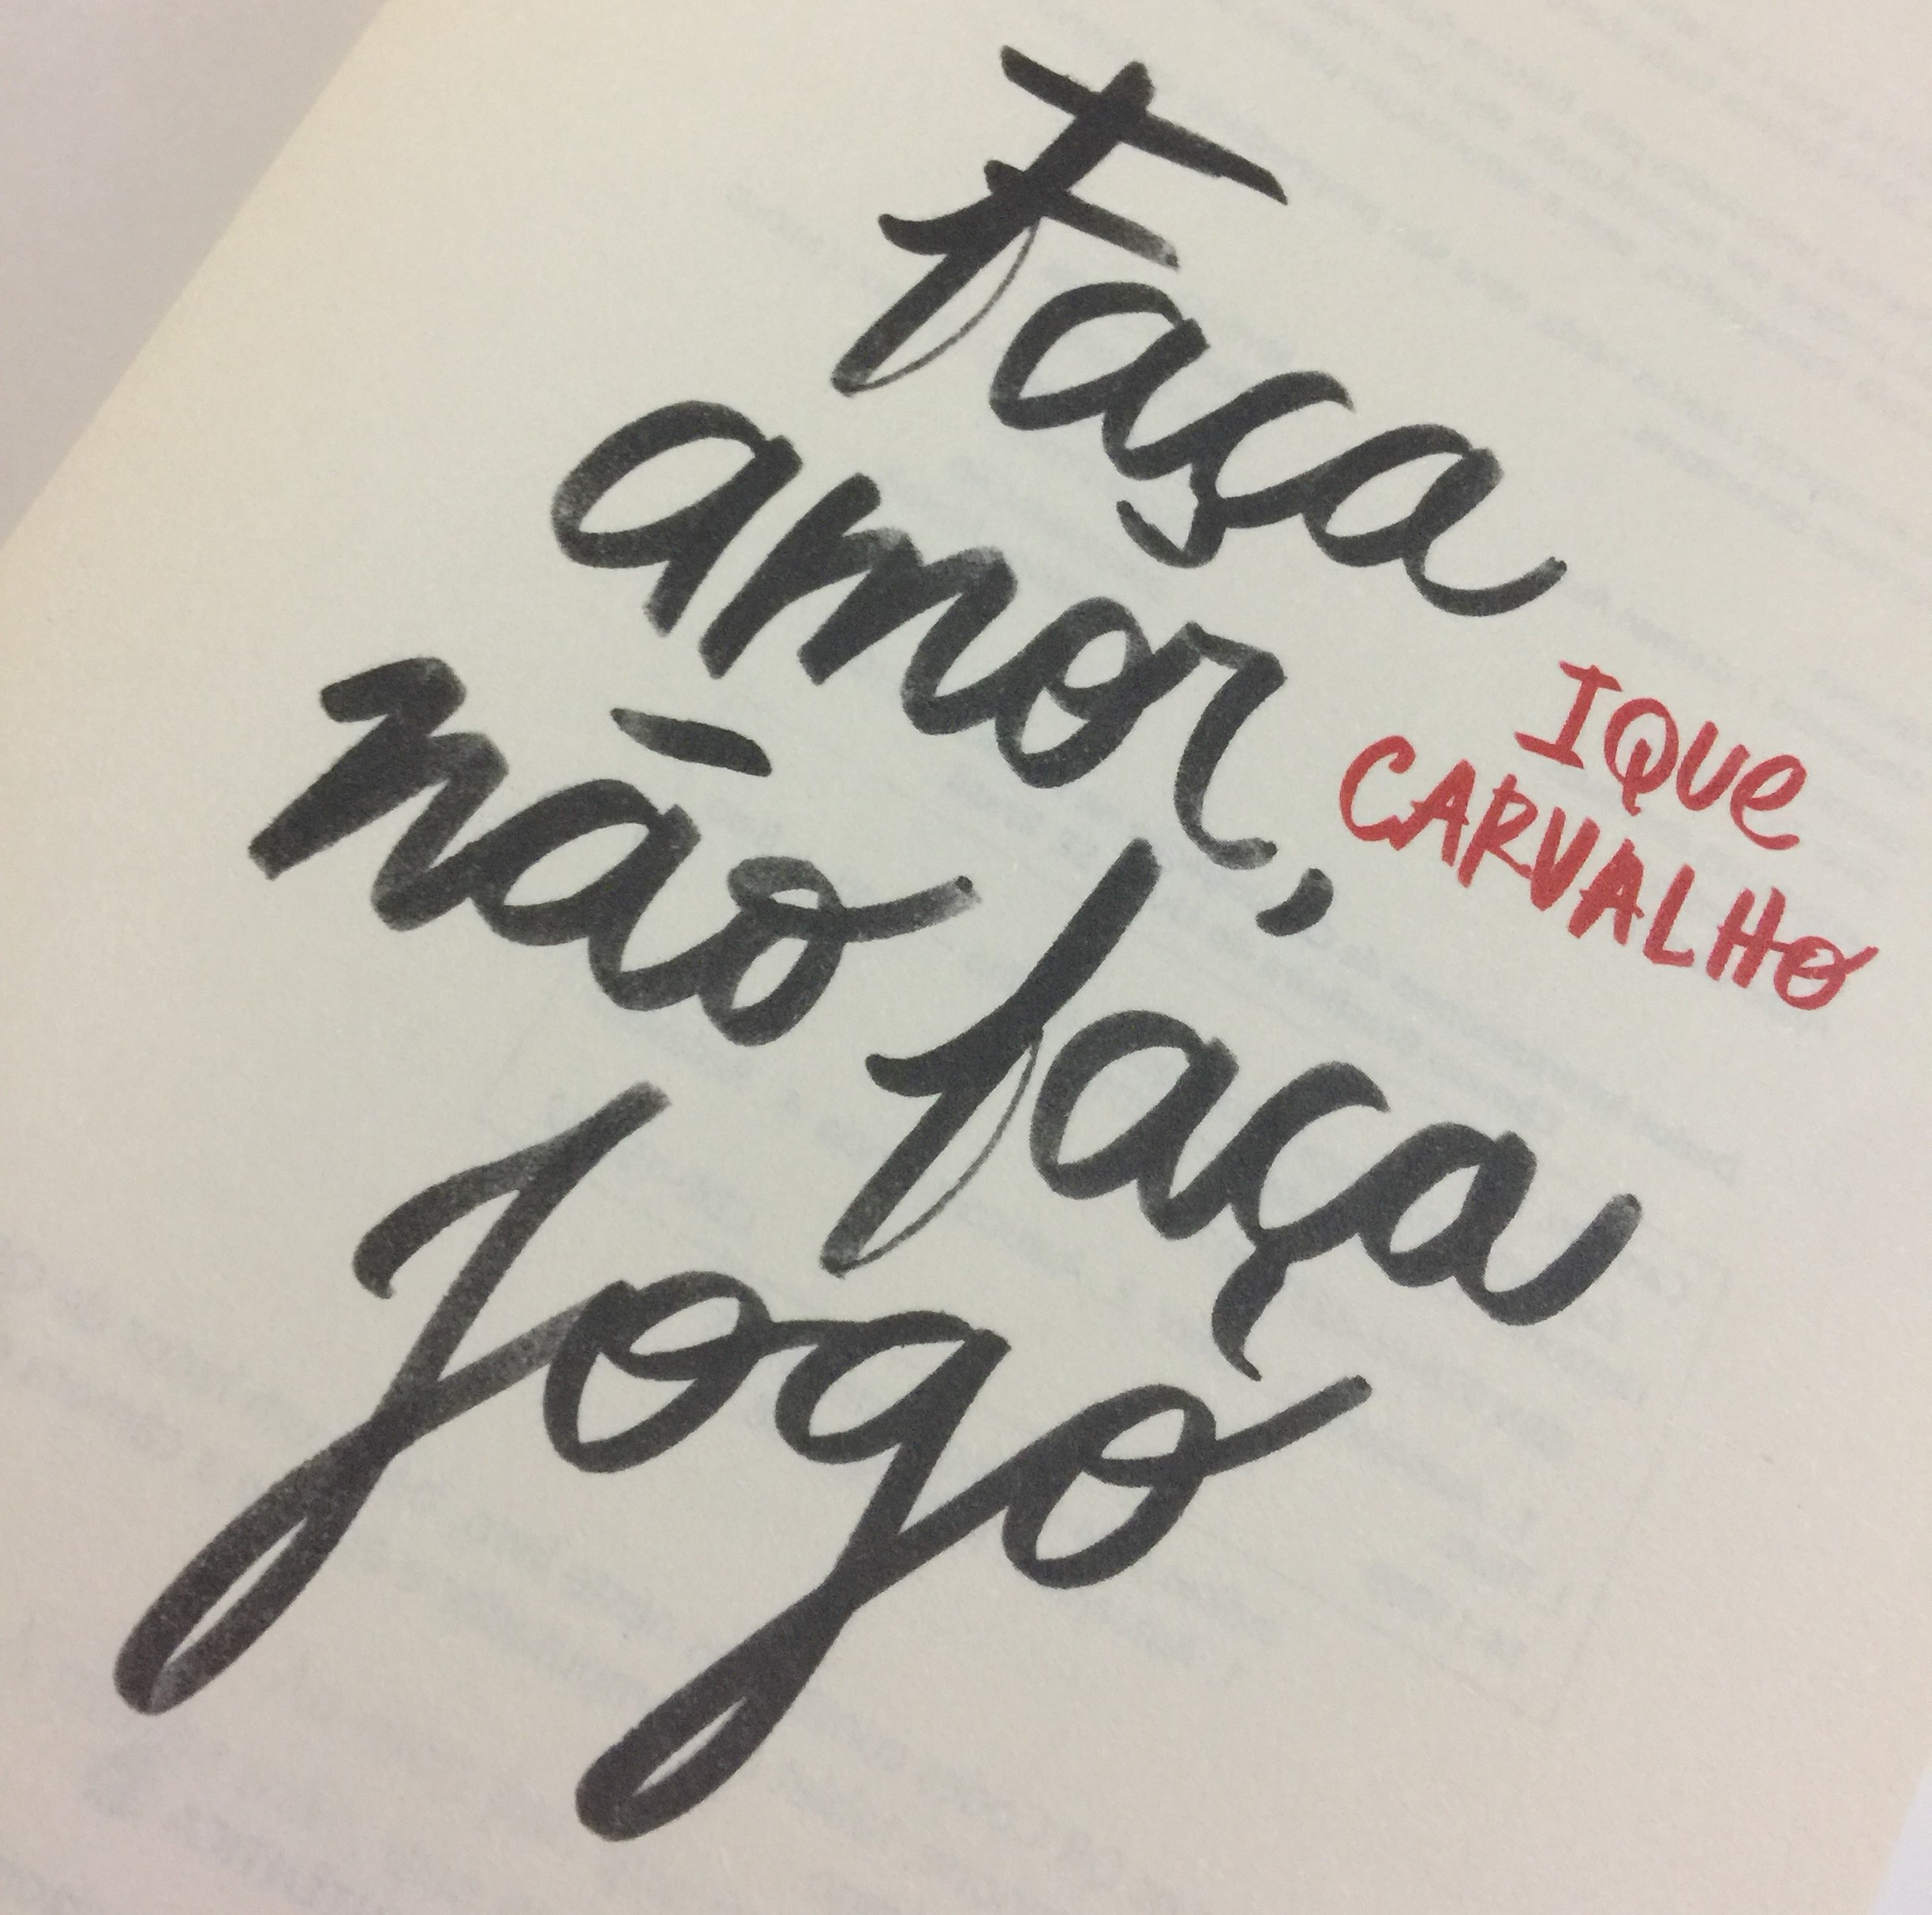 Faça
amor,
não faça
Jogo
IQUe
CARVALHO